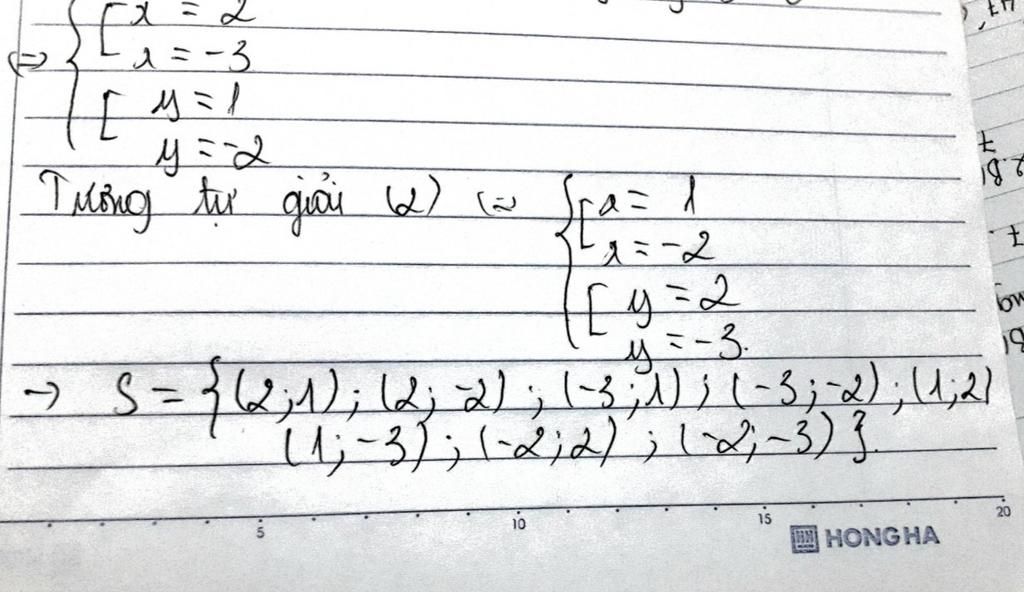 [x = 2
<=> { x = -3
[ y = 1
y = -2
Tương tự giải (2) <=> { [x = 1
x = -2
[ y = 2
y = -3.
→ S = {(2;1); (2; -2); (-3;1); (-3;-2); (1;2)
(1;-3); (-2;2); (-2;-3)}.
5 10 15 20
HONG HA